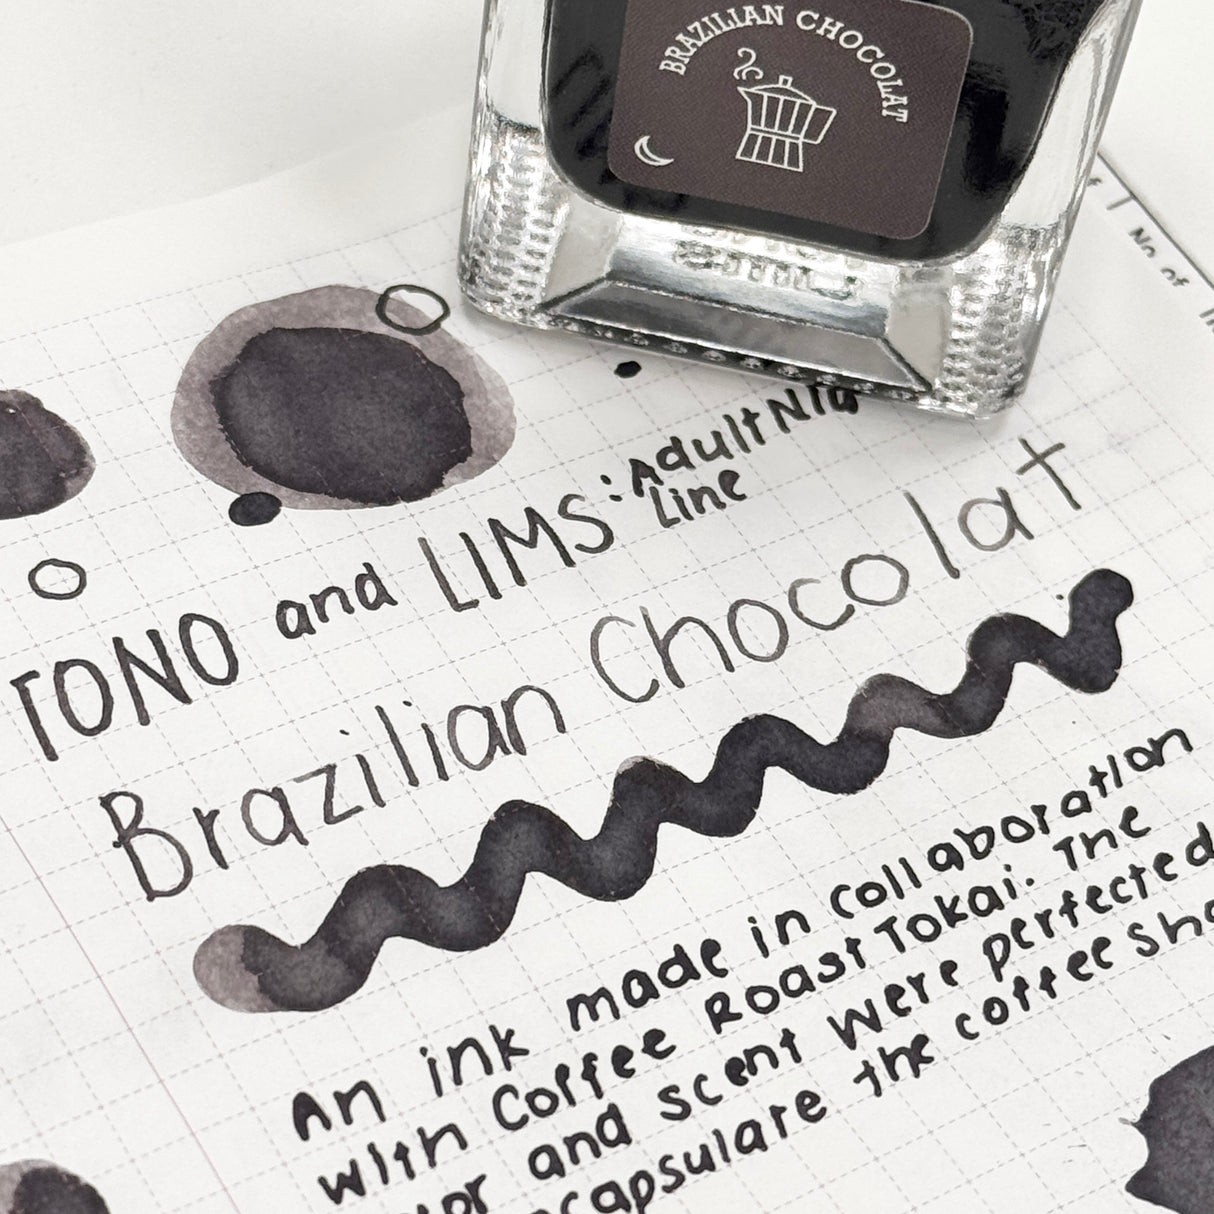 BRAZILIAN CHOCOLAT
No. of
TONO and LIMS: Adult
Line
Brazilian Chocolat
An ink made in collaboration
with Coffee Roast Tokai. The
and scent were perfected
the coffee